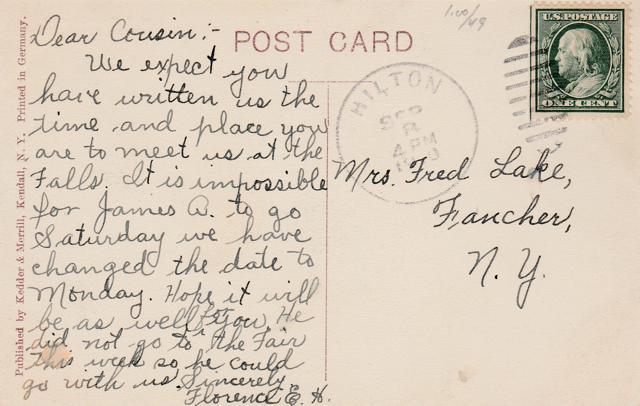 1.00/49
U.S. POSTAGE
ONE CENT
POST CARD
HILTON
SEP
8
4 PM
N.Y.
Published by Kedder & Merrill, Kendall, N. Y. Printed in Germany.
Dear Cousin:-
We expect you
have written us the
time and place you
are to meet us at the
Falls. It is impossible
for James A. to go
Saturday we have
changed the date to
Monday. Hope it will
be as well for you. He
did not go to the Fair
this week so he could
go with us. Sincerely
Florence E. H.
Mrs. Fred Lake,
Fancher,
N. Y.